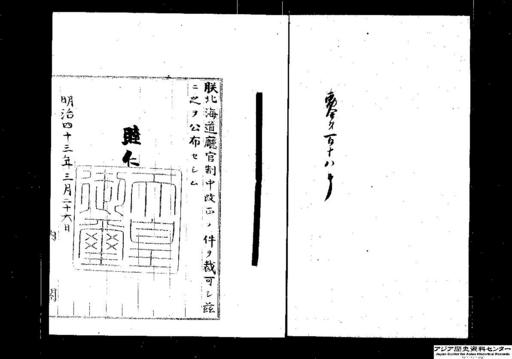 勅令第百十八号
朕北海道廳官制中改正ノ件ヲ裁可シ茲
ニ之ヲ公布セシム
睦仁
天皇
御璽
明治四十三年三月二十六日
内閣
アジア歴史資料センター
Japan Center for Asian Historical Records